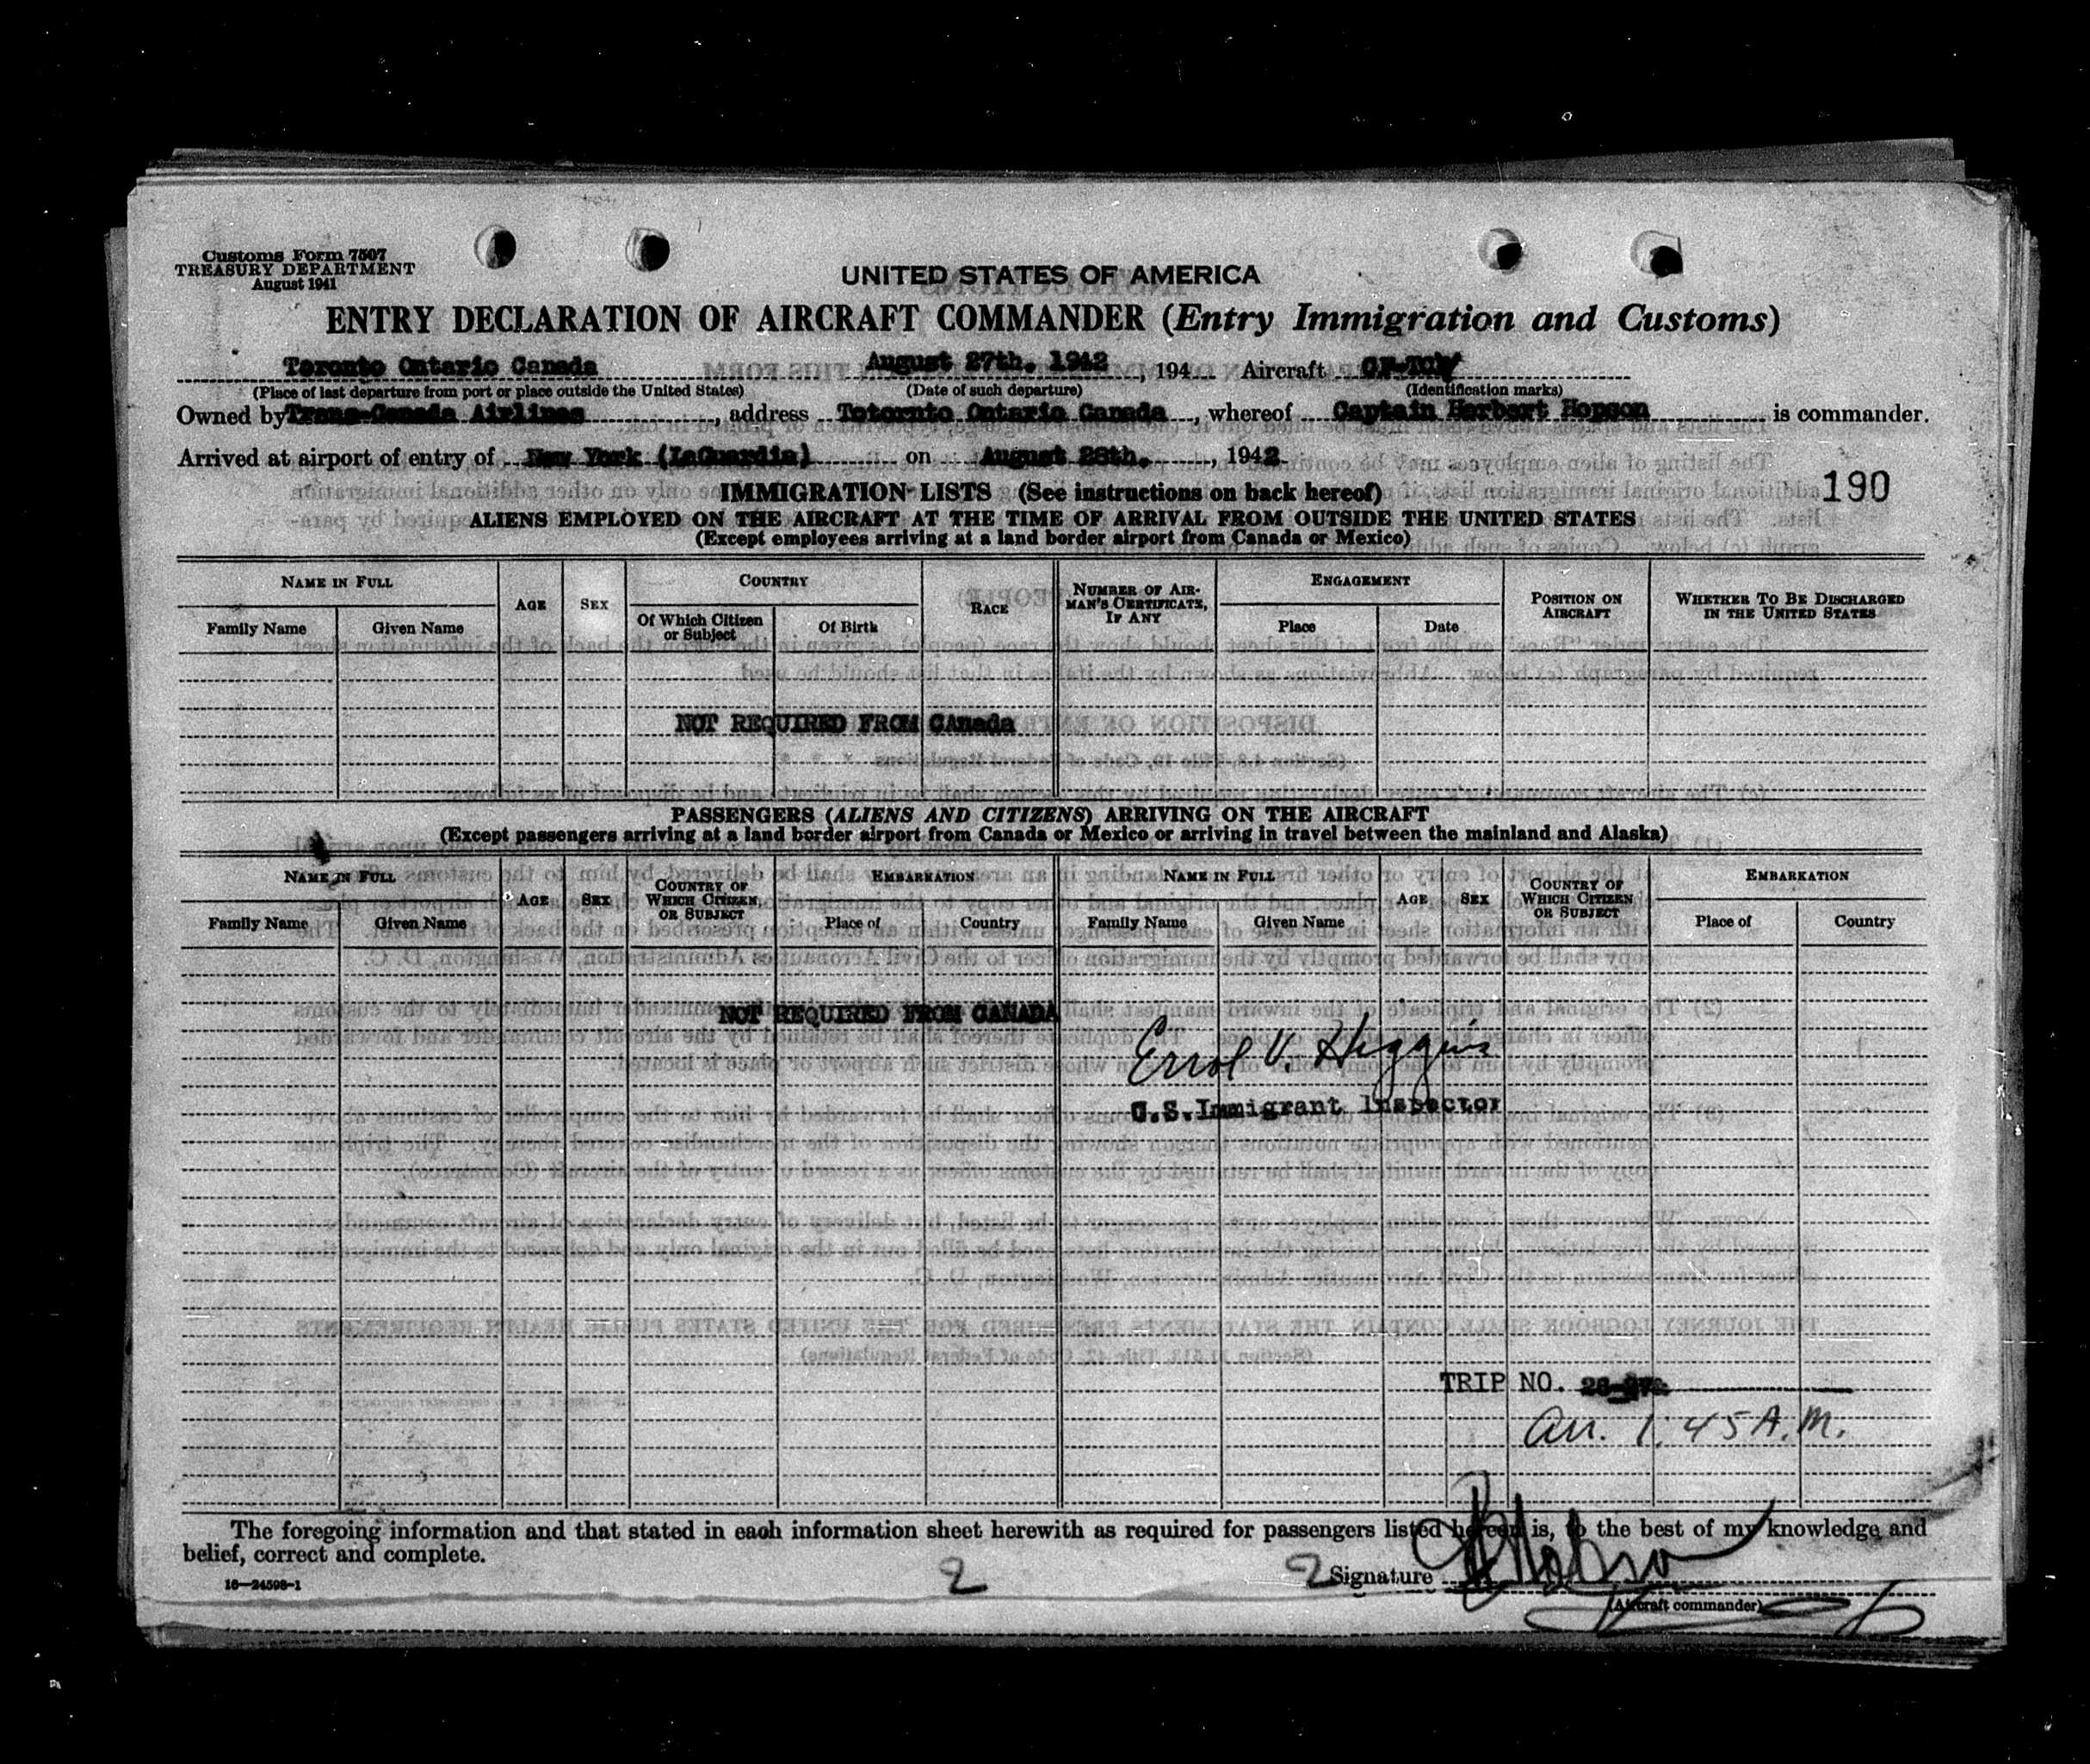 Customs Form 7507
TREASURY DEPARTMENT
August 1941
UNITED STATES OF AMERICA
ENTRY DECLARATION OF AIRCRAFT COMMANDER (Entry Immigration and Customs)
Toronto Ontario Canada August 27th. 1942, 194 Aircraft CF-TCW
(Place of last departure from port or place outside the United States) (Date of such departure) (Identification marks)
Owned by Trans-Canada Airlines, address Totornto Ontario Canada, whereof Captain Herbert Hopson is commander.
Arrived at airport of entry of New York (LaGuardia) on August 28th., 1942
190
IMMIGRATION LISTS (See instructions on back hereof)
ALIENS EMPLOYED ON THE AIRCRAFT AT THE TIME OF ARRIVAL FROM OUTSIDE THE UNITED STATES
(Except employees arriving at a land border airport from Canada or Mexico)
NAME IN FULL AGE SEX COUNTRY RACE NUMBER OF AIRMAN'S CERTIFICATE, IF ANY ENGAGEMENT POSITION ON AIRCRAFT WHETHER TO BE DISCHARGED IN THE UNITED STATES
Family Name Given Name Of Which Citizen or Subject Of Birth Place Date
NOT REQUIRED FROM CAnada
PASSENGERS (ALIENS AND CITIZENS) ARRIVING ON THE AIRCRAFT
(Except passengers arriving at a land border airport from Canada or Mexico or arriving in travel between the mainland and Alaska)
NAME IN FULL AGE SEX COUNTRY OF WHICH CITIZEN, OR SUBJECT EMBARKATION NAME IN FULL AGE SEX COUNTRY OF WHICH CITIZEN OR SUBJECT EMBARKATION
Family Name Given Name Place of Country Family Name Given Name Place of Country
NOT REQUIRED FROM CANADA
Errol V. Higgins
U.S.Immigrant Inspector
TRIP NO.
Arr. 1:45 A.M.
The foregoing information and that stated in each information sheet herewith as required for passengers listed hereon is, to the best of my knowledge and
belief, correct and complete.
2 2 Signature
16—24598-1
(Aircraft commander)